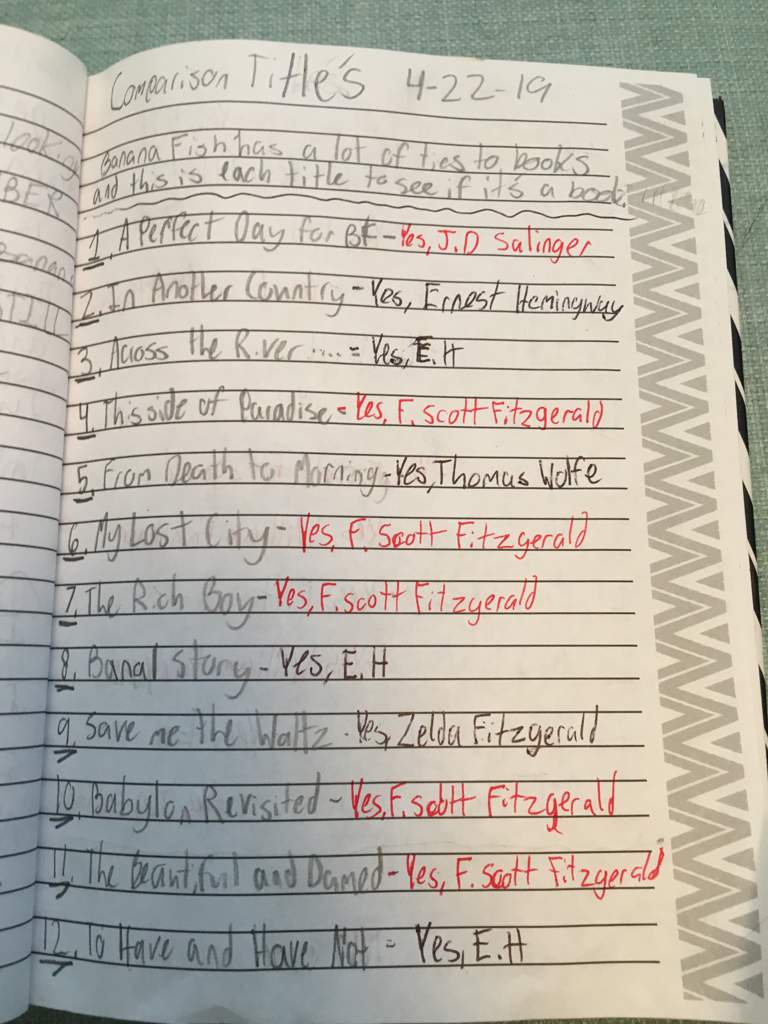 Comparison Title's 4-22-19
Banana Fish has a lot of ties to books
and this is each title to see if it's a book.
1. A Perfect Day for BF - Yes, J.D Salinger
2. In Another Country - Yes, Ernest Hemingway
3. Across the River .... = Yes, E.H
4. This side of Paradise = Yes, F. Scott Fitzgerald
5. From Death to Morning - Yes, Thomas Wolfe
6. My Lost City - Yes, F. Scott Fitzgerald
7. The Rich Boy - Yes, F. Scott Fitzgerald
8. Banal Story - Yes, E.H
9. Save me the Waltz - Yes, Zelda Fitzgerald
10. Babylon Revisited - Yes, F. Scott Fitzgerald
11. The Beautiful and Damed - Yes, F. Scott Fitzgerald
12. To Have and Have Not = Yes, E.H
looking
BER